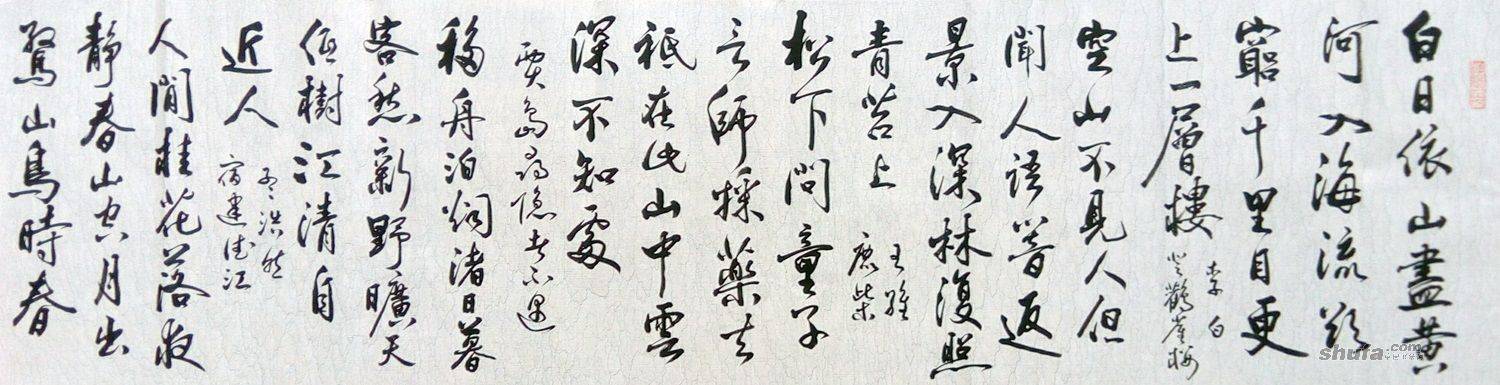 白日依山盡黄
河入海流欲
窮千里目更
上一層樓
李白
登鸛雀楼
空山不見人但
聞人語響返
景入深林復照
青苔上
王維
鹿柴
松下問童子
言師採藥去
祗在此山中雲
深不知處
贾島尋隐者不遇
移舟泊烟渚日暮
客愁新野曠天
低樹江清月
近人
孟浩然
宿建德江
人閒桂花落夜
靜春山空月出
驚山鳥時春
shufa.com